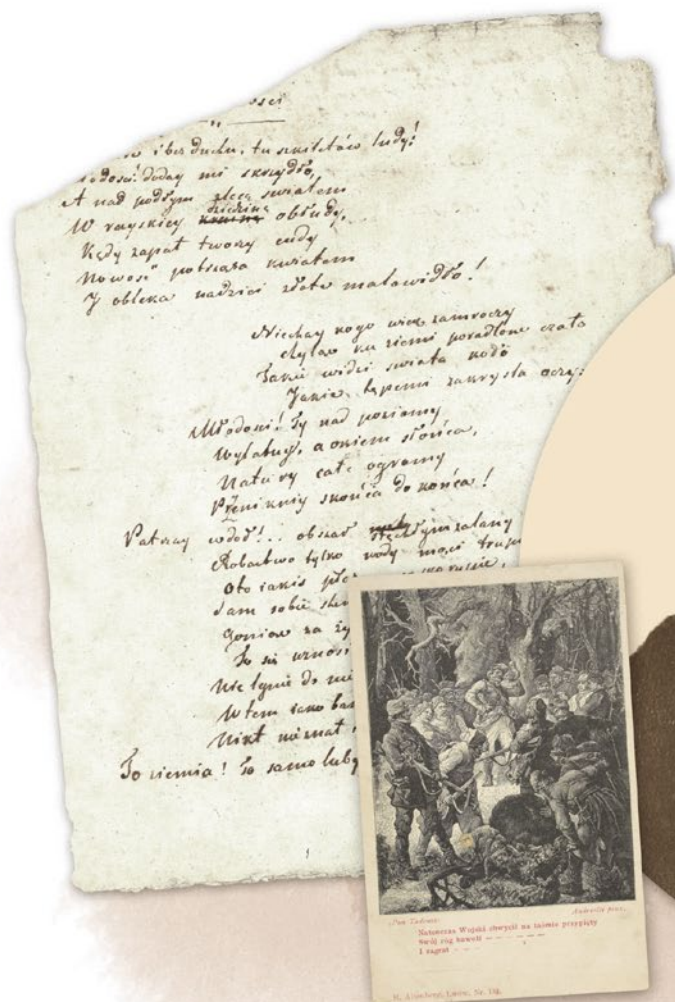 ości
i bez ducha, tu szkieletów ludy!
łodości! doday mi skrzydło,
A nad podłym zlecę swiatem
W rayskiey dziedzinę obłudy,
Kędy zapał tworzy cudy
Nowości potrząsa kwiatem
J obleka nadziei złote malowidło!
Niechay kogo wiek zamroczy
Chyląc ku ziemi poradlone czoło
Takie widzi swiata koło
Jakie tępemi zakrysla oczy:
Młodości! Ty nad poziomy
Wylatuy, a okiem słońca,
Natury całe ogromy
Przenikniy s końca do końca!
Patrzay w doł!.. obszar zalany
Robactwo tylko wody mąci trupi
Oto iakis skorupie,
Sam sobie
Goniąc za ży
To się wznosi
Nie lgnie do
Wtem iako
Nikt nieznał
To ziemia! To samo luby
Pan Tadeusz.
Andriolli pinx.
Natenczas Wojski chwycił na taśmie przypięty
Swój róg bawoli — — — — — —
I zagrał — — —
H. Altenberg, Lwów, Nr.